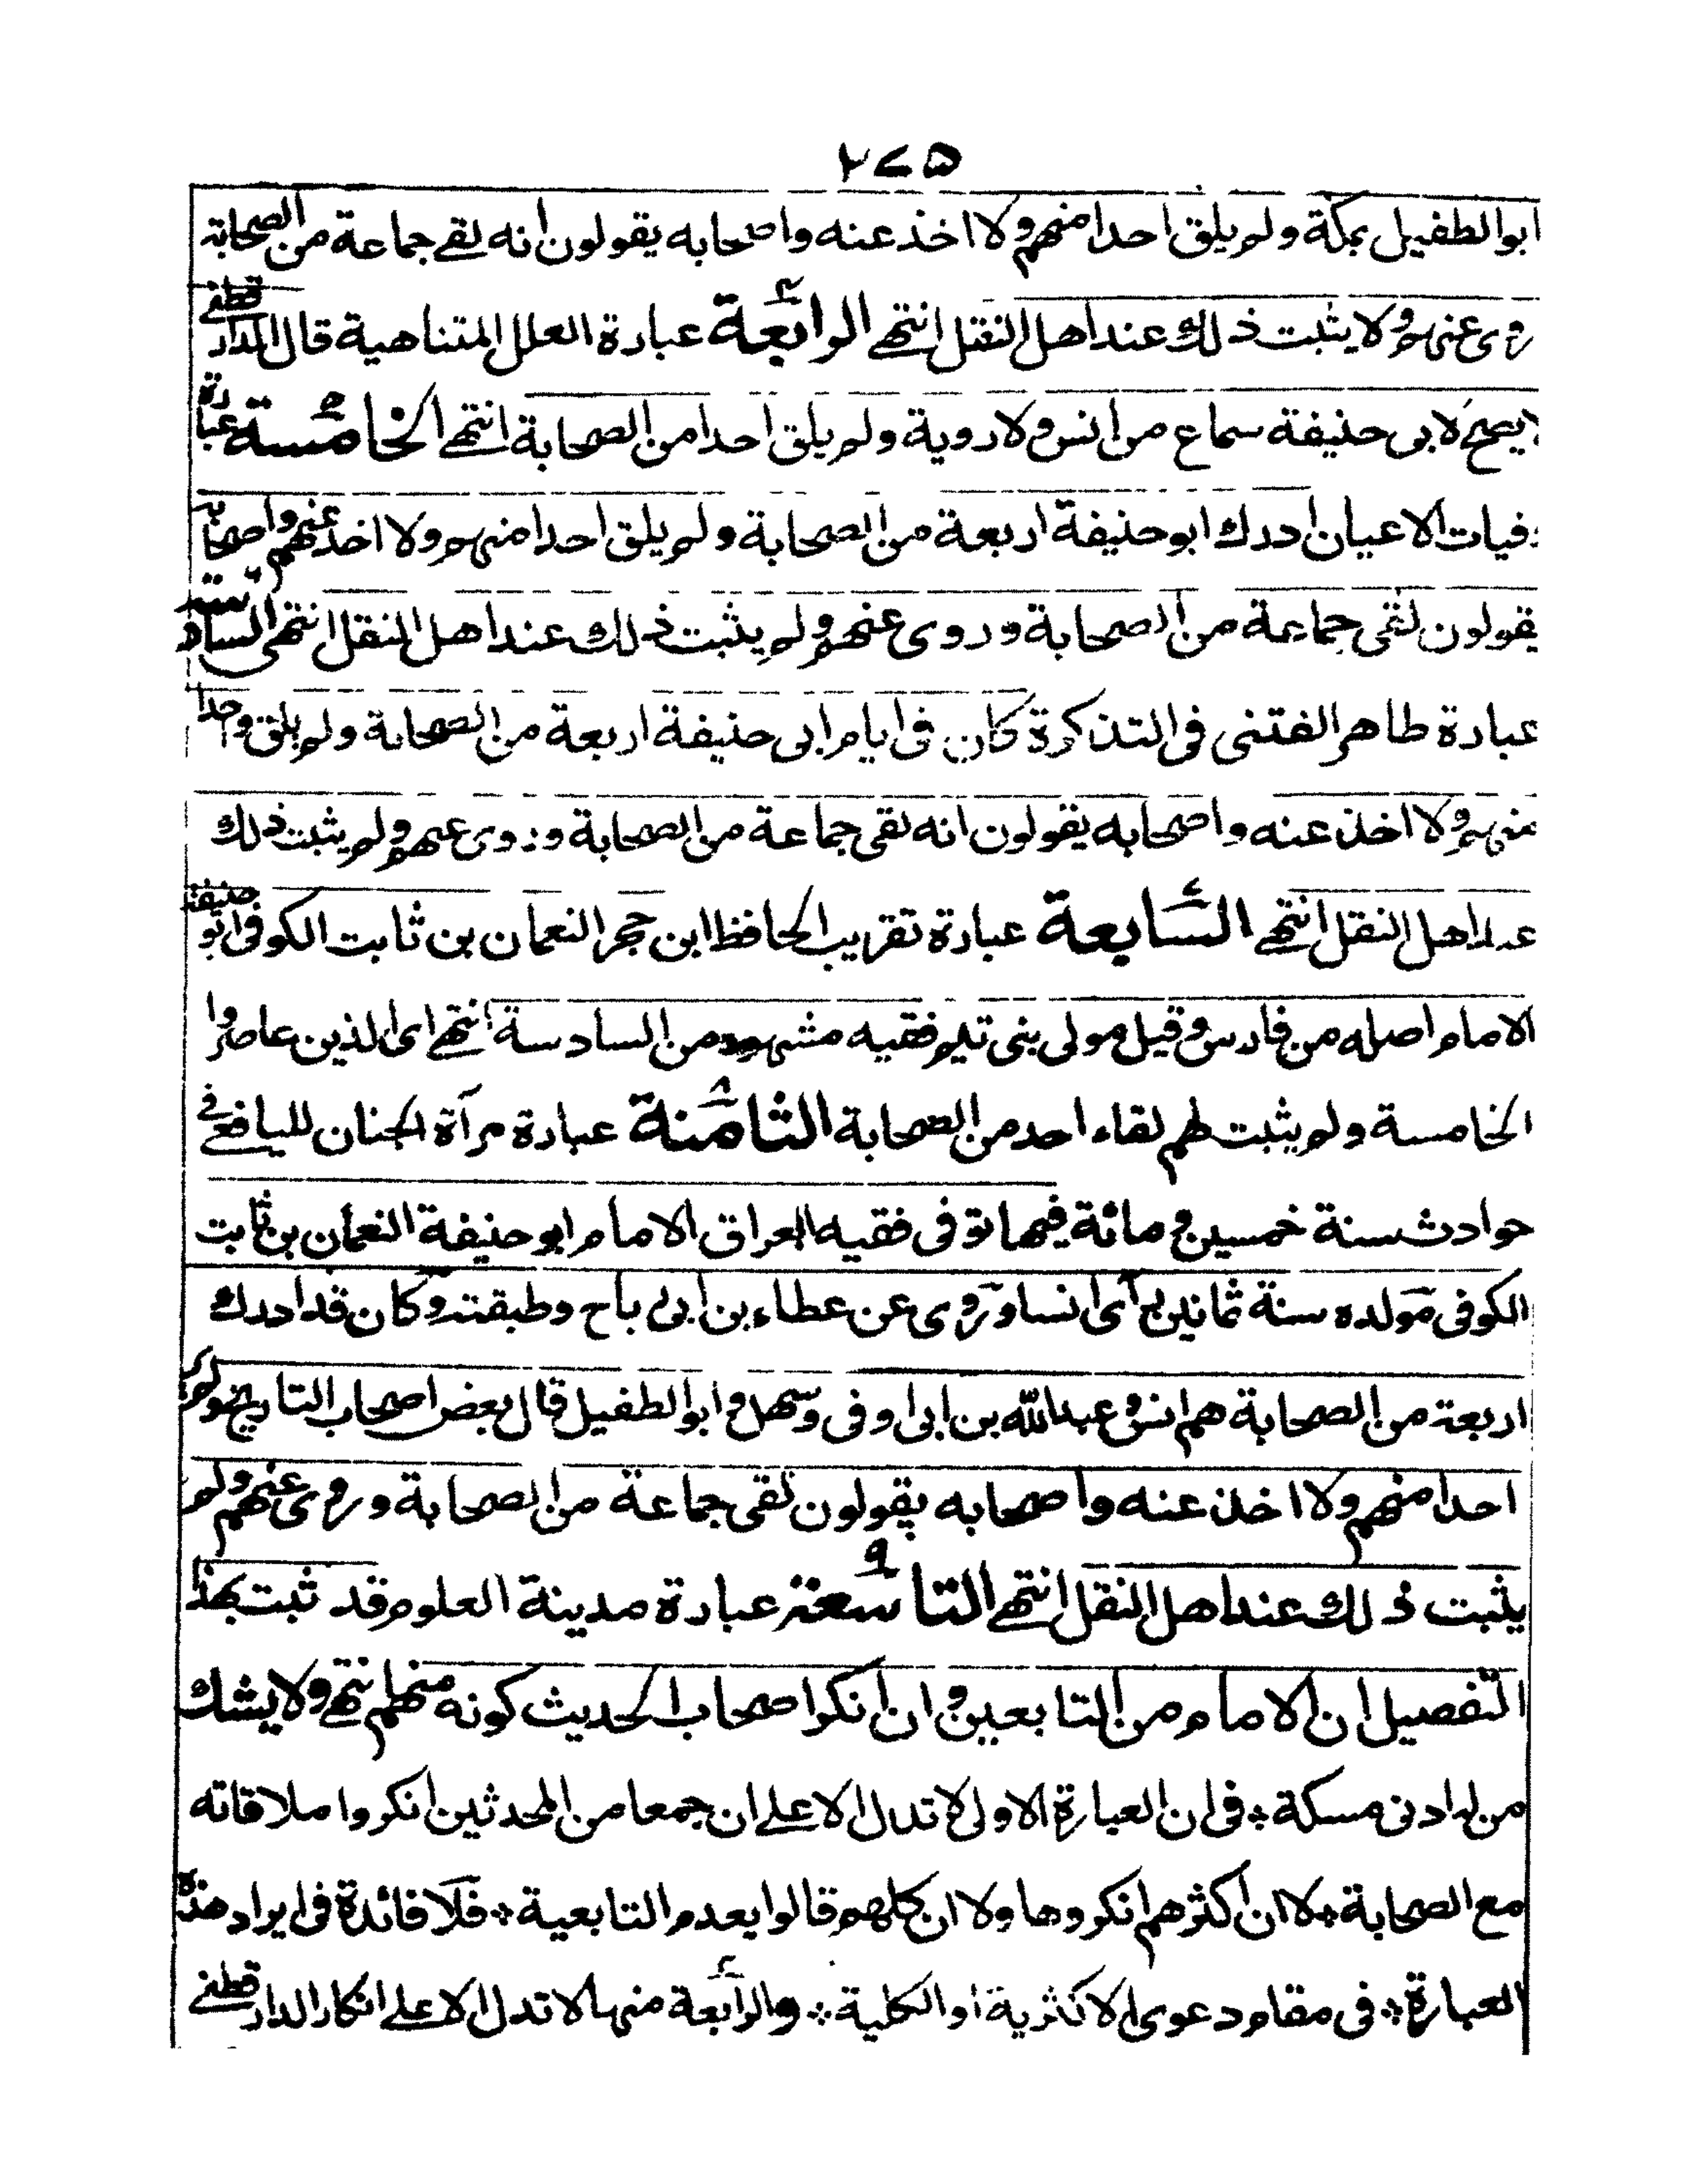 ٢٧٥
ابو الطفيل بمكة ولم يلق احدا منهم ولا اخذ عنه واصحابه يقولون انه لقے جماعة من الصحابة
روى عنهم ولا يثبت ذلك عند اهل النقل انتهے الرابعة ٤ عبارة العلل المتناهية قال الدارقطنے
لا يصح لابى حنيفة سماع من انس ولا روية ولم يلق احدا من الصحابة انتهے الخامسة ٥ عبارة
وفيات الاعيان ادرك ابو حنيفة اربعة من الصحابة ولم يلق احدا منهم ولا اخذ عنهم واصحابه
يقولون لقى جماعة من الصحابة وروى عنهم ولم يثبت ذلك عند اهل النقل انتهى السادسة
عبارة طاهر الفتنى فى التذكرة كان فى ايام ابى حنيفة اربعة من الصحابة ولم يلق واحدا
منهم ولا اخذ عنه واصحابه يقولون انه لقى جماعة من الصحابة وروى عنهم ولم يثبت ذلك
عند اهل النقل انتهے السابعة ٧ عبارة تقريب الحافظ ابن حجر النعمان بن ثابت الكوفى ابو حنيفة
الامام اصله من فارس وقيل مولى بنى تيم فقيه مشهور من السادسة انتهے اى الذين عاصروا
الخامسة ولم يثبت لهم لقاء احد من الصحابة الثامنة ٨ عبارة مرآة الجنان لليافعے فى
حوادث سنة خمسين ومائة فيها توفى فقيه العراق الامام ابو حنيفة النعمان بن ثابت
الكوفى مولده سنة ثمانين رأى انسا وروى عن عطاء بن ابى رباح وطبقته وكان قد ادرك
اربعة من الصحابة هم انس وعبد الله بن ابى اوفى وسهل وابو الطفيل قال بعض اصحاب التاريخ ولم ير
احدا منهم ولا اخذ عنه واصحابه يقولون لقى جماعة من الصحابة وروى عنهم ولم
يثبت ذلك عند اهل النقل انتهے التاسعة ٩ عبارة مدينة العلوم قد ثبت بهذا
التفصيل ان الامام من التابعين وان انكر اصحاب الحديث كونه منهم انتهے ولا يشك
من له ادنى مسكة * فى ان العبارة الاولى لا تدل الا على ان جمعا من المحدثين انكروا ملاقاته
مع الصحابة * لا ان اكثرهم انكروها ولا ان كلهم قالوا بعدم التابعية * فلا فائدة فى ايراد هذه
العبارة * فى مقام دعوى الاكثرية او الكلية * والرابعة ٤ منها لا تدل الا على انكار الدارقطنے